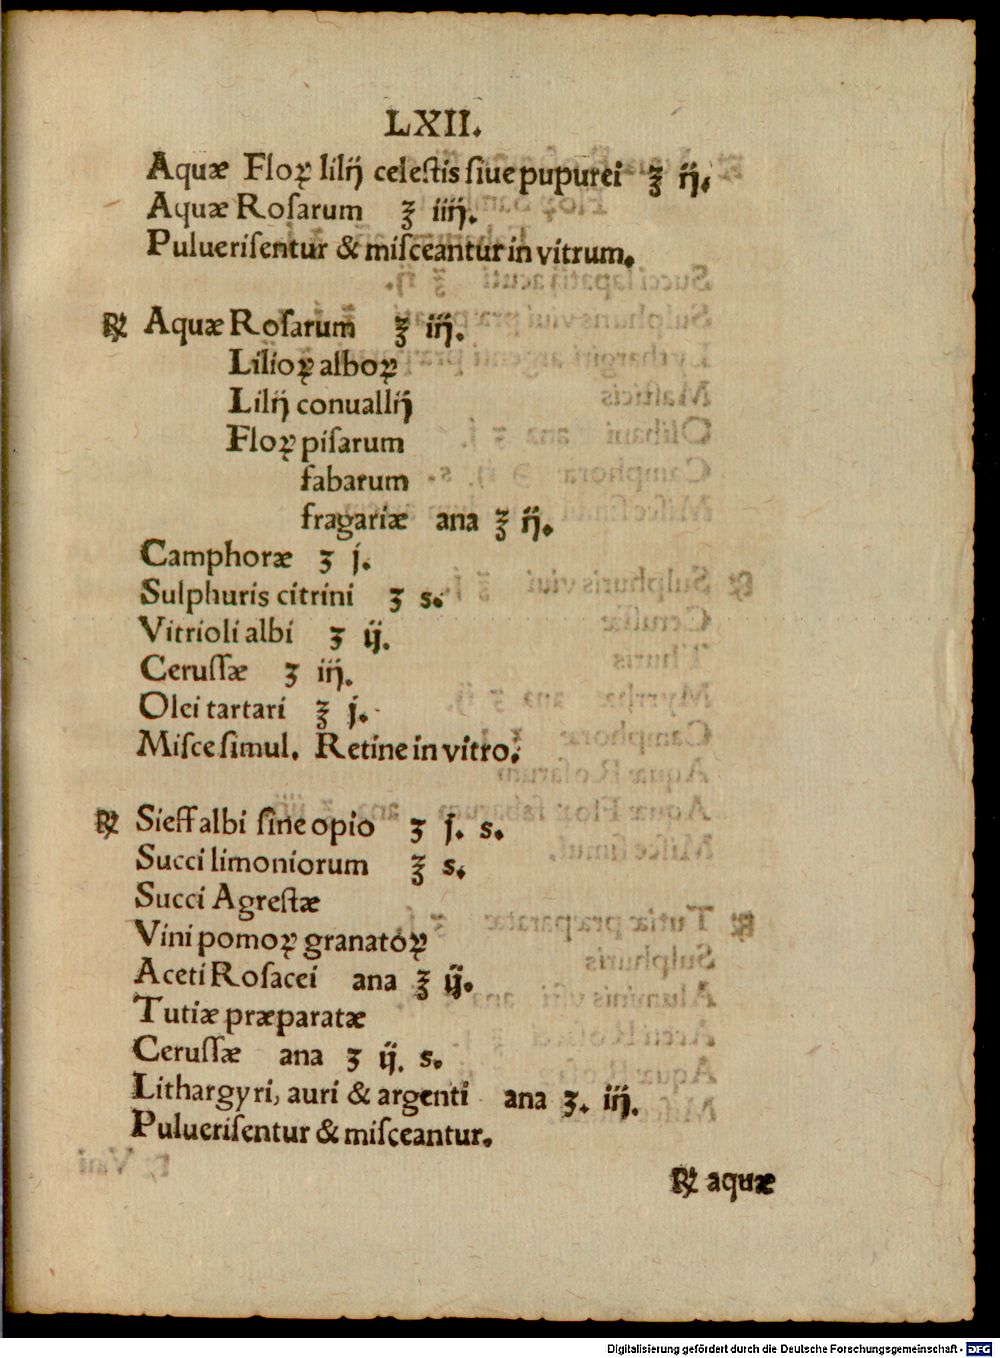 LXII.
Aquæ Floꝝ lilij celestis siue pupurei ℥ ij.
Aquæ Rosarum ℥ iiij.
Puluerisentur & misceantur in vitrum.
℞ Aquæ Rosarum ℥ iij.
Lilioꝝ alboꝝ
Lilij conuallij
Floꝝ pisarum
fabarum
fragariæ ana ℥ ij.
Camphoræ ʒ j.
Sulphuris citrini ʒ s.
Vitrioli albi ʒ ij.
Cerussæ ʒ iij.
Olei tartari ℥ j.
Misce simul. Retine in vitro.
℞ Sieff albi sine opio ʒ j. s.
Succi limoniorum ℥ s.
Succi Agrestæ
Vini pomoꝝ granatoꝝ
Aceti Rosacei ana ℥ ij.
Tutiæ præparatæ
Cerussæ ana ʒ ij. s.
Lithargyri, auri & argenti ana ʒ. iij.
Puluerisentur & misceantur.
℞ aquæ
Digitalisierung gefördert durch die Deutsche Forschungsgemeinschaft - DFG